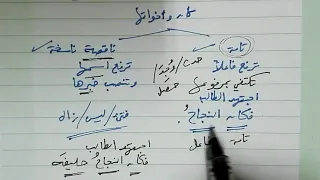 كان وأخواتها
تامة
ناقصة ناسخة
ترفع فاعلاً
حدث/وُجد/حصل
ترفع اسمها
تكتفي بمرفوعها
وتنصب خبرها
اجتهد الطالب
فتئ/ليس/زال
فكان النجاحُ
تامة فاعل
اجتهد الطالب
فكان النجاحُ حليفَه